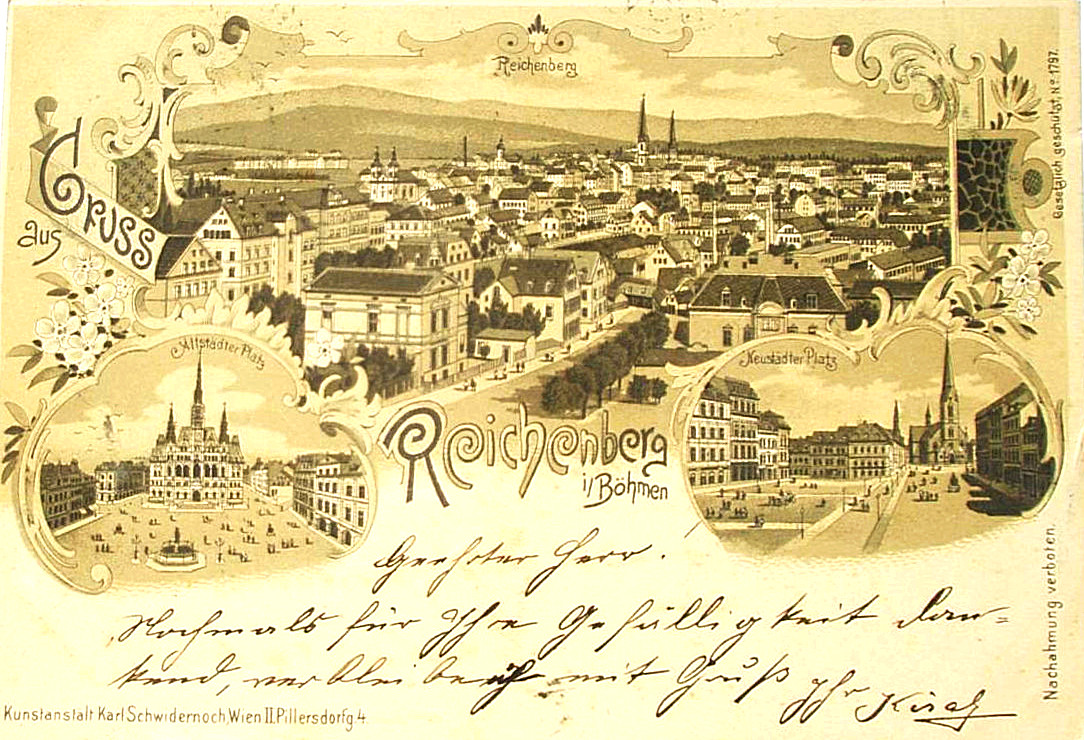 Reichenberg
Gruss
aus
Gesetzlich geschützt, No 1797.
Altstädter Platz
Neustädter Platz
Reichenberg
i/Böhmen
Geehrter Herr!
Nochmals für Ihre Gefälligkeit dan=
kend, verbleibe ich mit Gruß Ihr
Kunstanstalt Karl Schwidernoch, Wien II. Pillersdorfg. 4.
Nachahmung verboten.